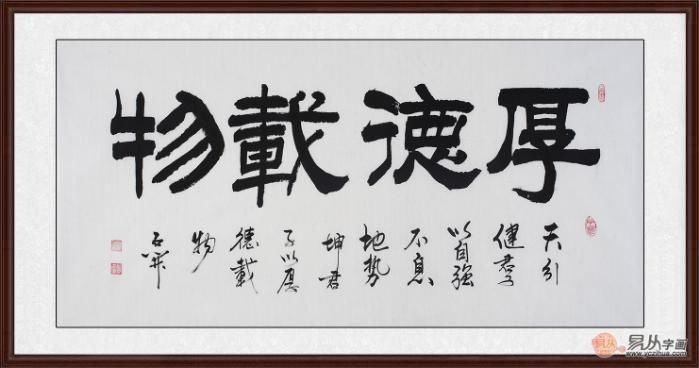 厚德載物
天行
健君子
以自強
不息
地勢
坤君
子以厚
德載
物
易从字画
www.yczihua.com